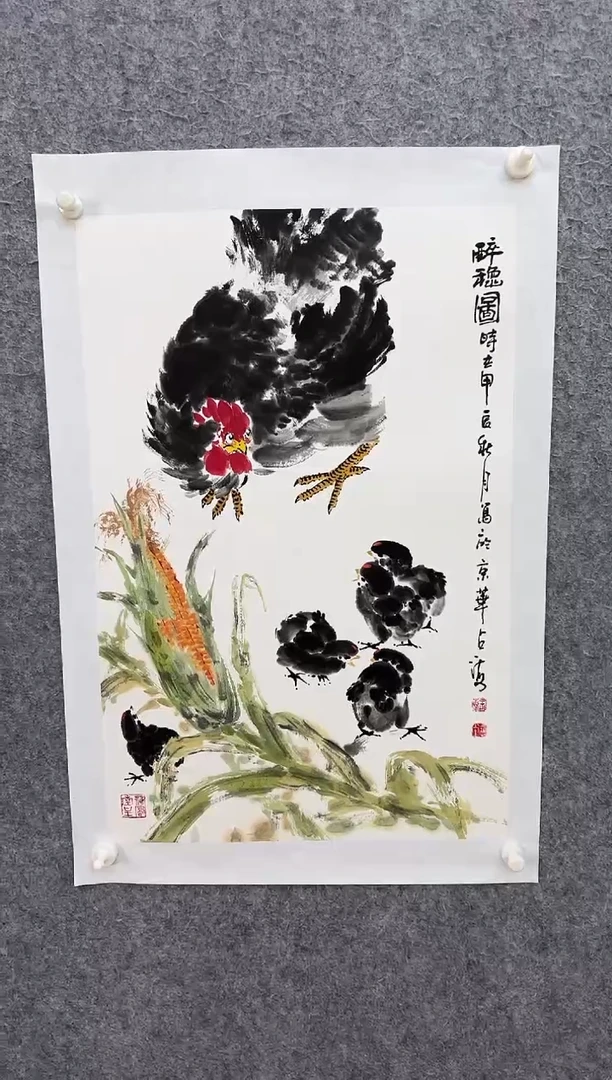 醉穗圖時在甲辰秋月寫於京華占